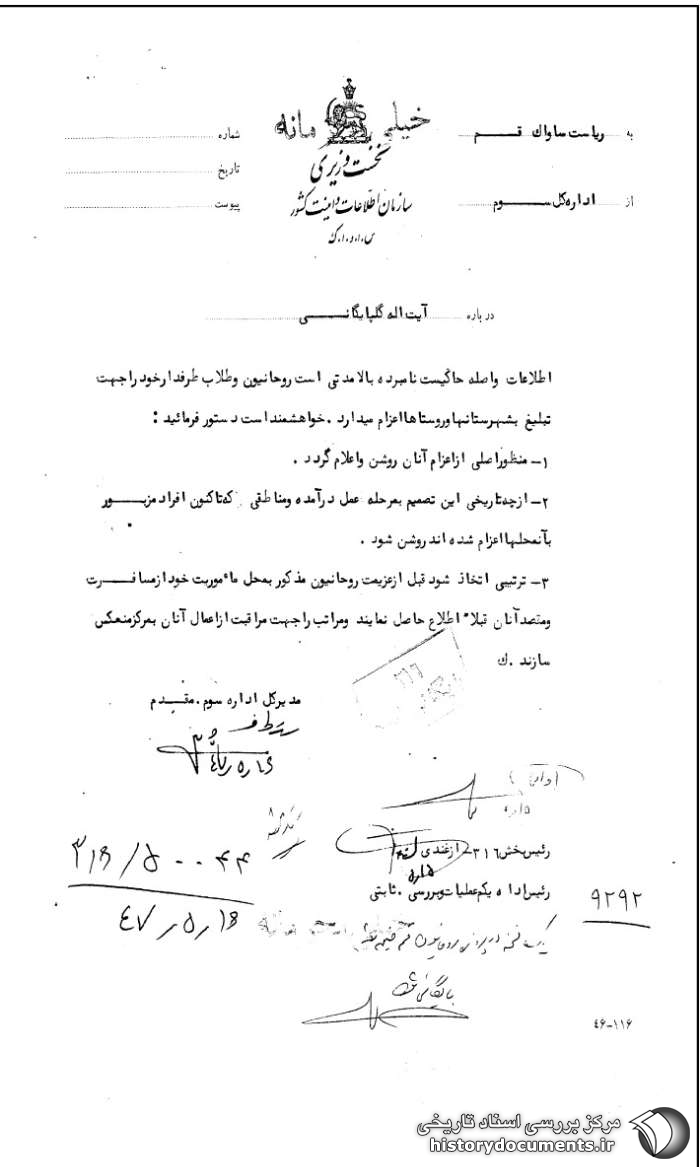 خیلی محرمانه
به ریاست ساواک قـــم
شماره
نخست وزیری
تاریخ
از اداره کل ســـوم
سازمان اطلاعات و امنیت کشور
پیوست
س.ا.و.ا.ک
درباره آیت اله گلپایگانـــی
اطلاعات واصله حاکیست نامبرده بالا مدتی است روحانیون وطلاب طرفدار خود را جهت
تبلیغ بشهرستانها وروستاها اعزام میدارد . خواهشمند است دستور فرمائید :
۱- منظور اصلی از اعزام آنان روشن واعلام گردد .
۲- از چه تاریخی این تصمیم بمرحله عمل درآمده ومناطقی که تاکنون افراد مزبـــور
بآنمحلها اعزام شده اند روشن شود .
۳- ترتیبی اتخاذ شود قبل از عزیمت روحانیون مذکور بمحل مأموریت خود از مسافـــرت
ومقصد آنان قبلاً اطلاع حاصل نمایند ومراتب را جهت مراقبت از اعمال آنان بمرکز منعکس
سازند . ك
مدیرکل اداره سوم . مقـــدم
رئیس بخش ۳۱۶ ازغندی
رئیس اداره یکم عملیات وبررسی . ثابتی
۳۱۶/۵۰۰۴۴
۴۷/۵/۱۶
۹۲۹۲
بایگانی شود
۴۶-۱۱۶
مرکز بررسی اسناد تاریخی
historydocuments.ir